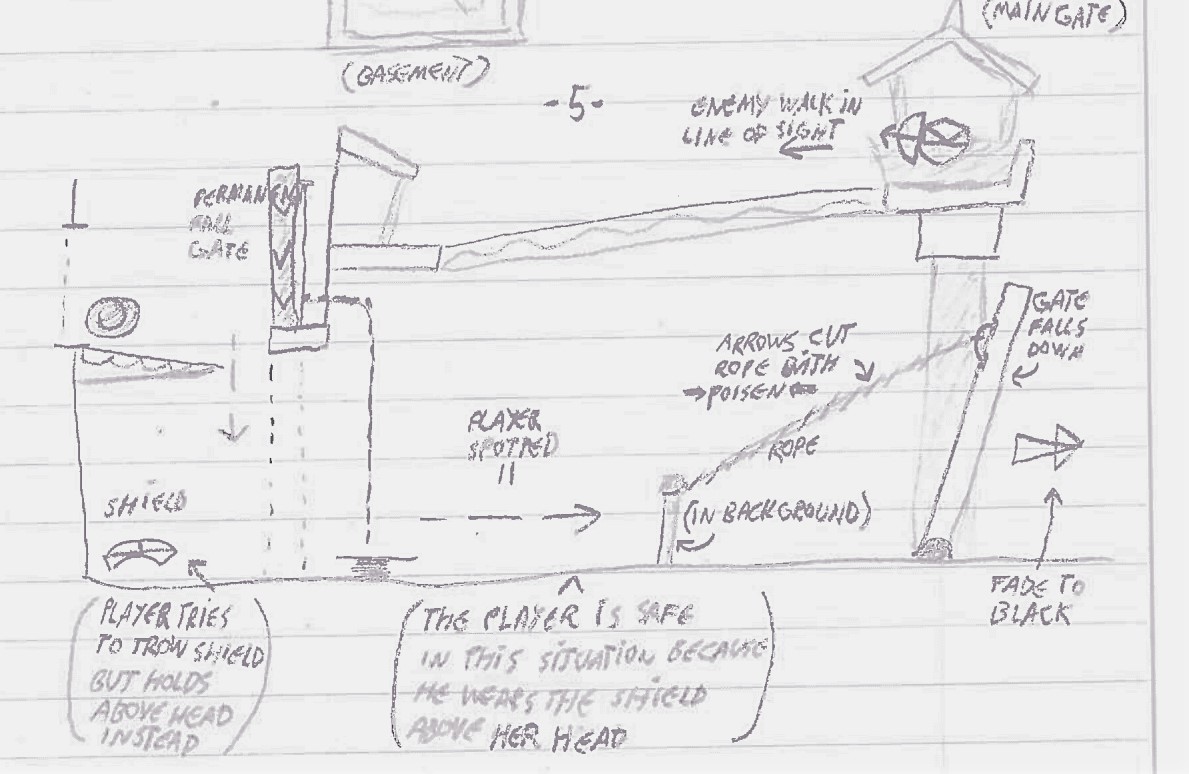 (MAIN GATE)
(BASEMENT)
-5-
ENEMY WALK IN
LINE OF SIGHT
PERMANENT
FALL
GATE
GATE
FALLS
DOWN
ARROWS CUT
ROPE WITH
POISEN
ROPE
PLAYER
SPOTTED
!!
SHIELD
(IN BACKGROUND)
FADE TO
BLACK
(PLAYER TRIES
TO TROW SHIELD
BUT HOLDS
ABOVE HEAD
INSTEAD)
(THE PLAYER IS SAFE
IN THIS SITUATION BECAUSE
HE WEARS THE SHIELD
ABOVE HER HEAD)